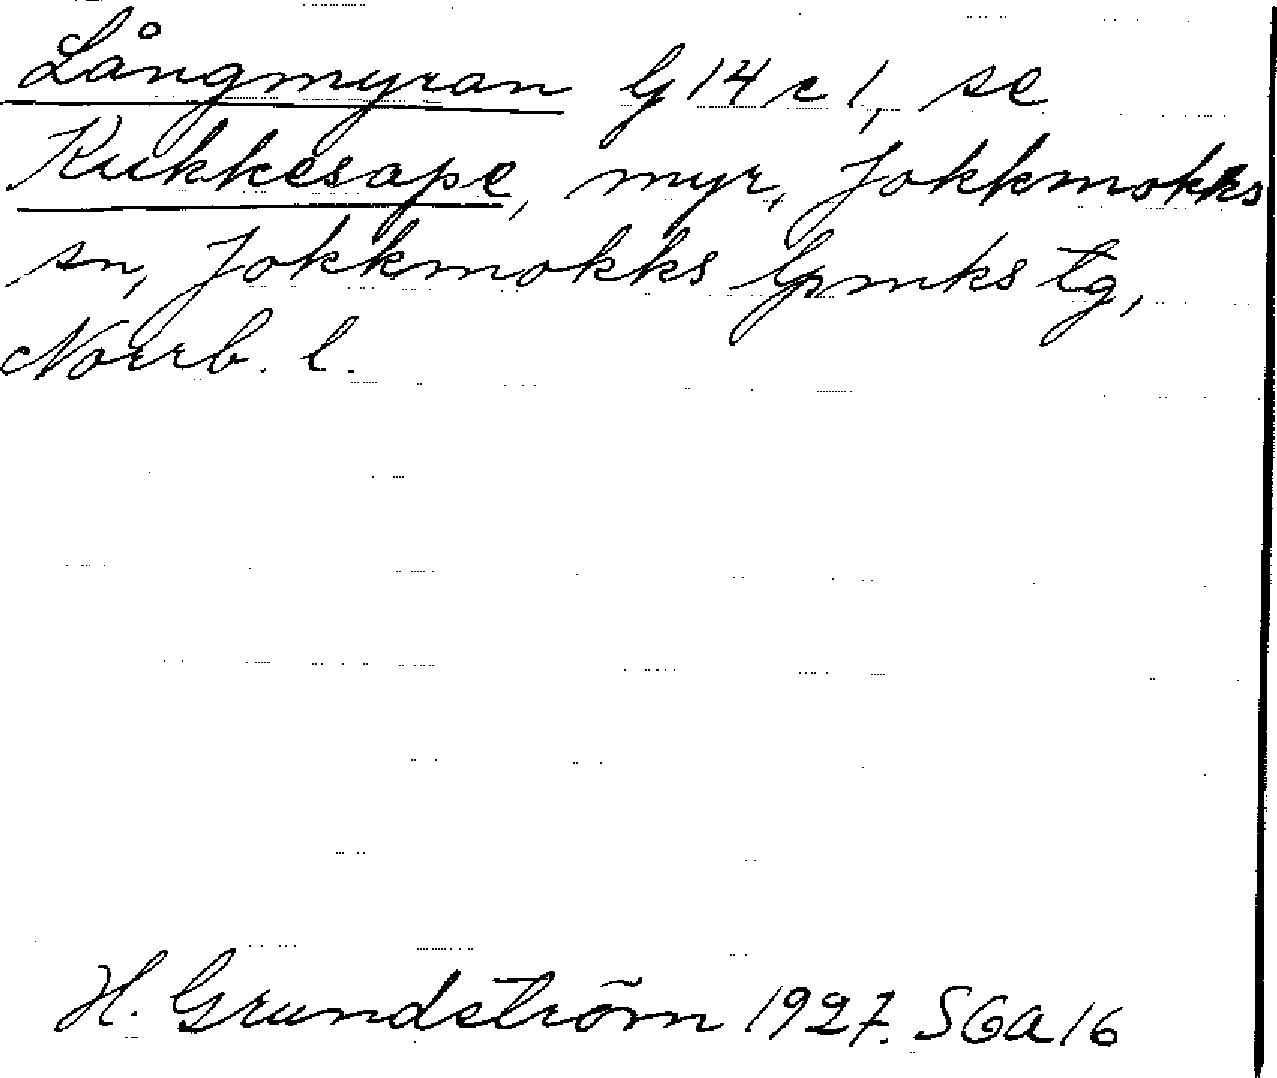 Långmyran G 14 c 1, se
Kukkesape, myr, Jokkmokks
sn, Jokkmokks lpmks tg,
Norrb. l.
H. Grundström 1927. SGA 16